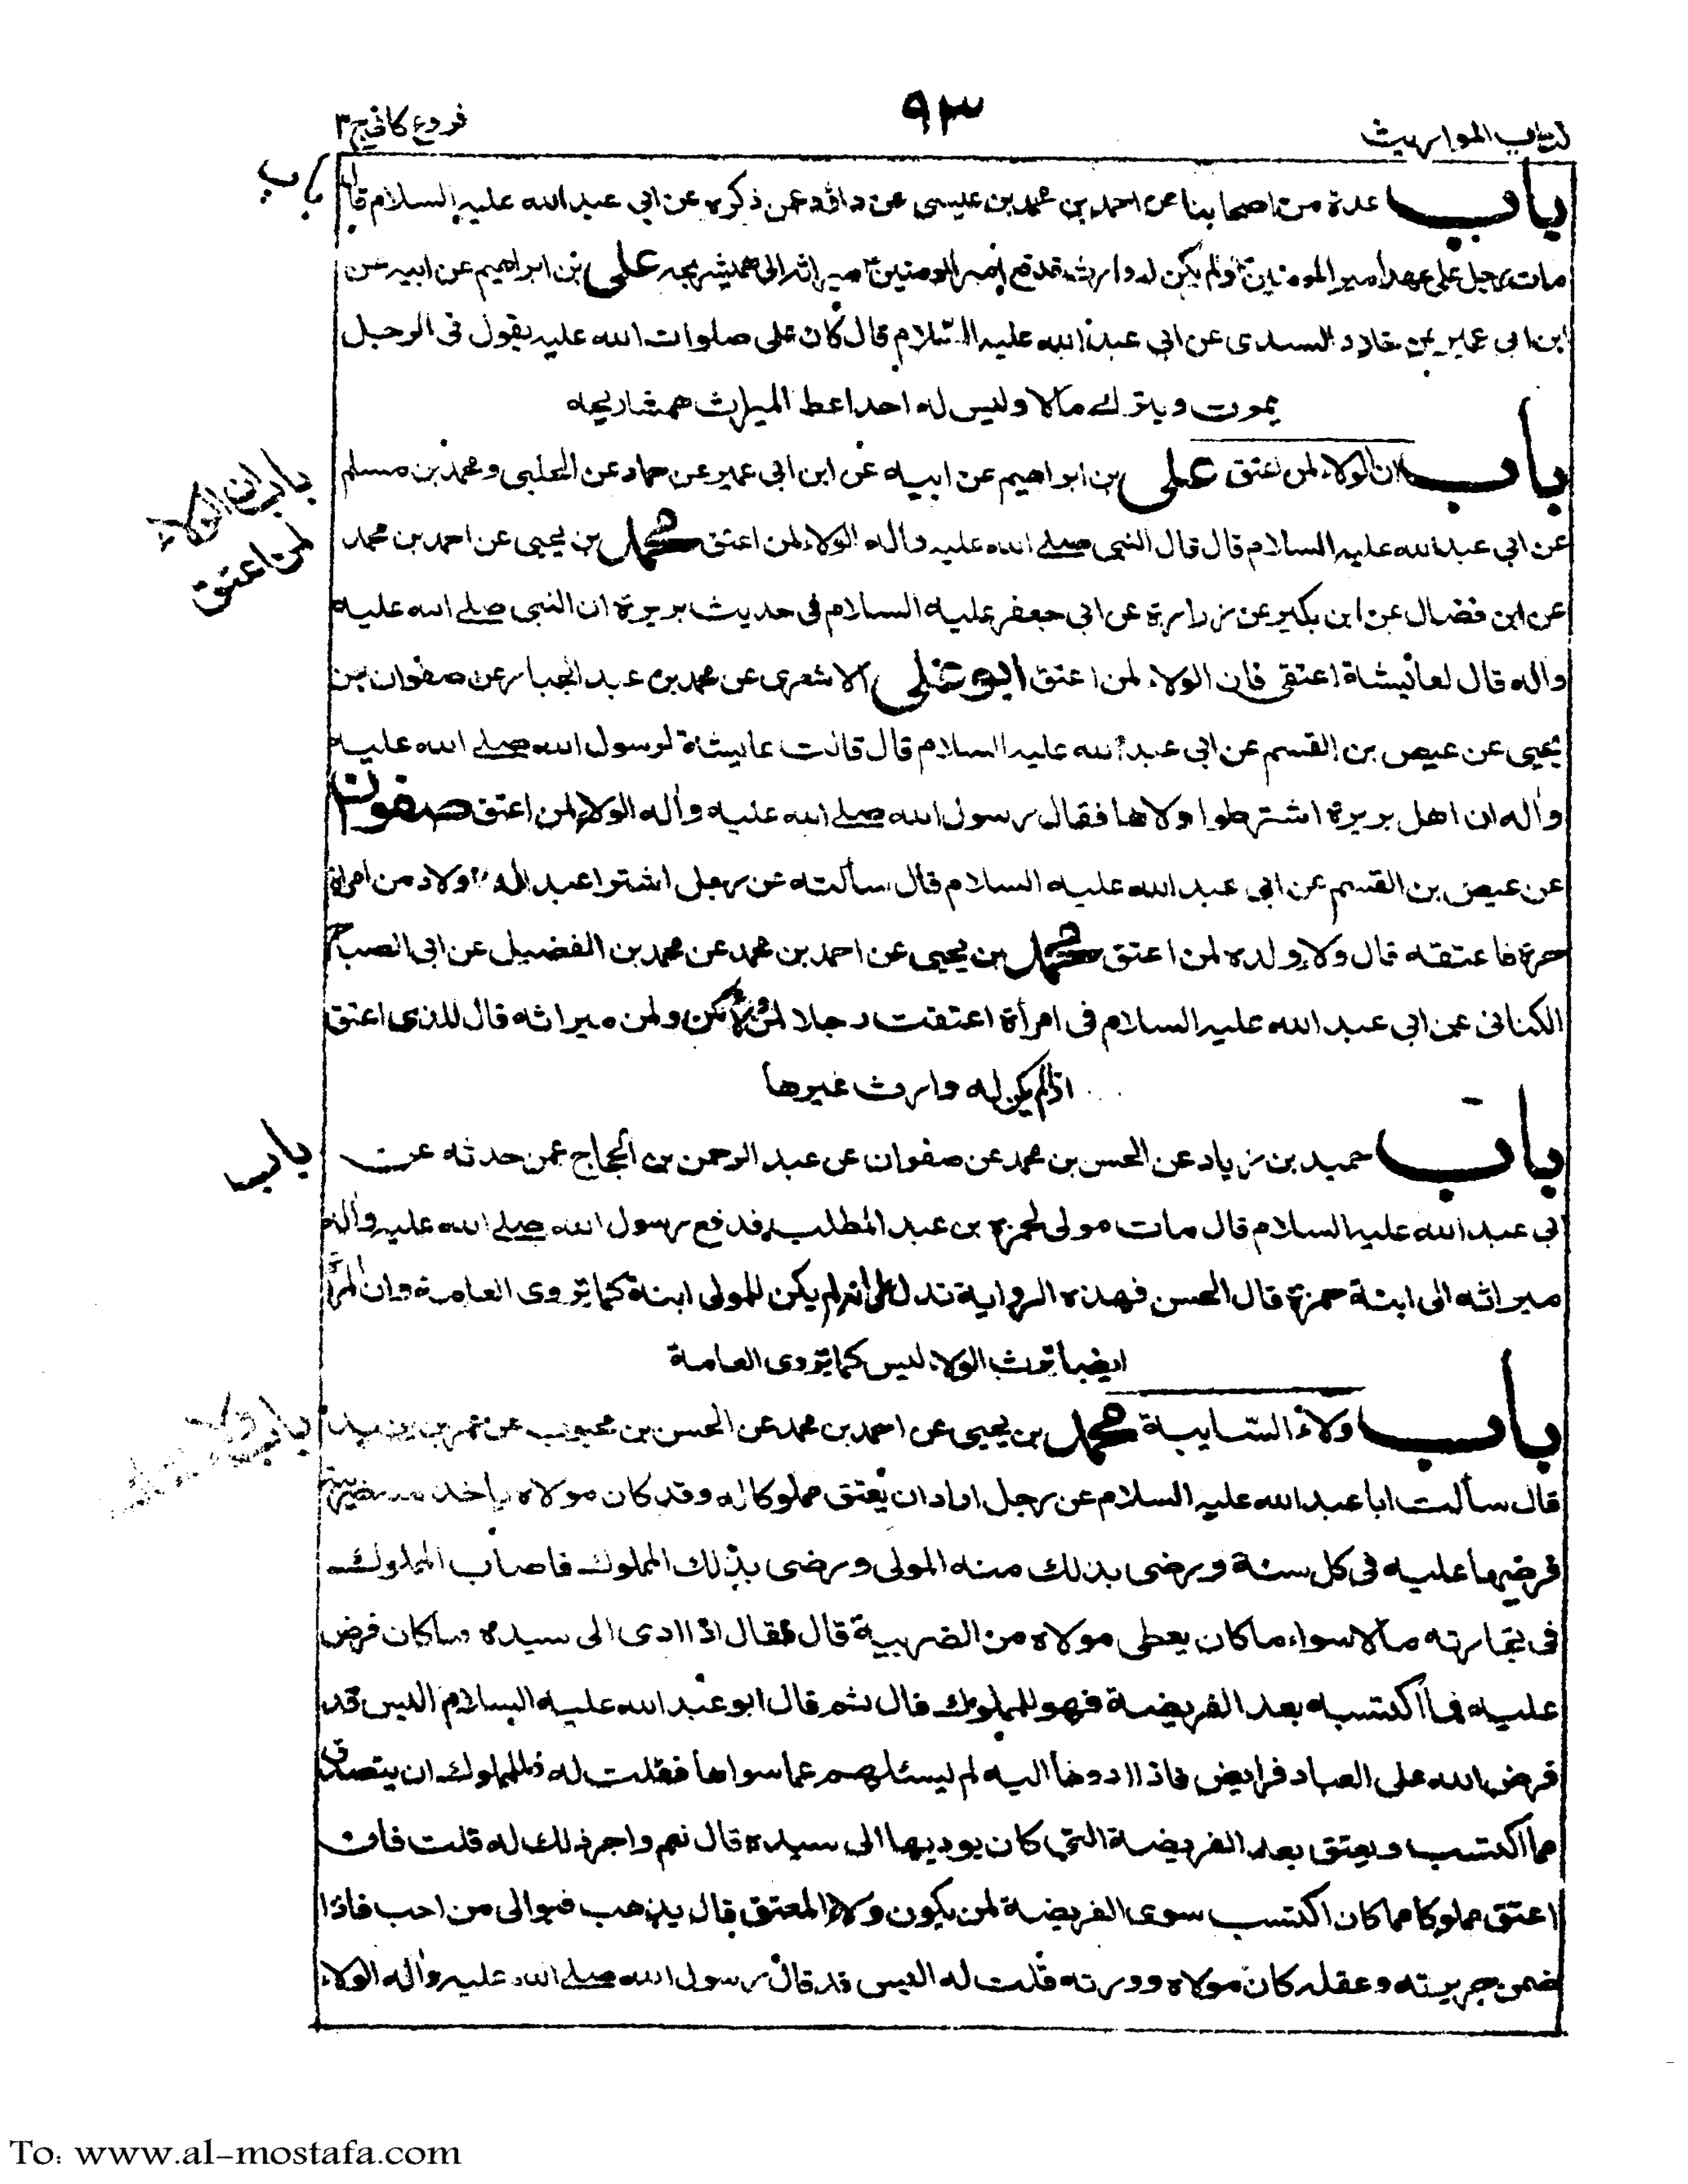 كتاب المواريث
٩٣
فروع كافي ج ٣
باب
باب عدة من اصحابنا عن احمد بن محمد بن عيسى عن داود عمن ذكره عن ابي عبد الله عليه السلام قال
مات رجل على عهد امير المومنين ولم يكن له وارث فدفع امير المومنين ميراثه الى همشيريجه علي بن ابراهيم عن ابيه عن
ابن ابي عمير عن خلاد السندى عن ابي عبد الله عليه السلام قال كان على صلوات الله عليه يقول فى الرجل
يموت ويترك مالا وليس له احد اعط الميراث همشاريجه
باب ان الولاء لمن اعتق علي بن ابراهيم عن ابيه عن ابن ابي عمير عن حماد عن الحلبي ومحمد بن مسلم
باب ان الولاء
لمن اعتق
عن ابي عبد الله عليه السلام قال قال النبي صلى الله عليه واله الولاء لمن اعتق محمد بن يحيى عن احمد بن محمد
عن ابن فضال عن ابن بكير عن زرارة عن ابي جعفر عليه السلام فى حديث بريرة ان النبي صلى الله عليه
واله قال لعائيشة اعتقى فان الولاء لمن اعتق ابو علي الاشعرى عن محمد بن عبد الجبار عن صفوان بن
يحيى عن عيص بن القسم عن ابي عبد الله عليه السلام قال قالت عايشة لرسول الله صلى الله عليه
واله ان اهل بريرة اشترطوا ولاها فقال رسول الله صلى الله عليه واله الولاء لمن اعتق صفوان
عن عيص بن القسم عن ابي عبد الله عليه السلام قال سألته عن رجل اشترا عبدا له اولاد من امراة
حرة فاعتقه قال ولاء ولده لمن اعتق محمد بن يحيى عن احمد بن محمد عن محمد بن الفضيل عن ابي الصباح
الكنانى عن ابي عبد الله عليه السلام فى امرأة اعتقت رجلا لمن ولاؤه ولمن ميراثه قال للذى اعتق
اذا لم يكن له وارث غيرها
باب حميد بن زياد عن الحسن بن محمد عن صفوان عن عبد الرحمن بن الحجاج عمن حدثه عن
باب
ابي عبد الله عليه السلام قال مات مولى لحمزة بن عبد المطلب فدفع رسول الله صلى الله عليه واله
ميراثه الى ابنة حمزة قال الحسن فهذه الرواية تدل على انه لم يكن للمولى ابنة كما تروى العامة وان المرأة
ايضا ترث الولاء ليس كما تروى العامة
باب ولاء السّايبة محمد بن يحيى عن احمد بن محمد عن الحسن بن محبوب عن عمر بن يزيد
باب ولاء
قال سألت ابا عبد الله عليه السلام عن رجل اراد ان يعتق مملوكا له وقد كان مولاه ياخذ منه ضريبة
فرضها عليه فى كل سنة ورضى بذلك منه المولى ورضى بذلك المملوك فاصاب المملوك
فى تجارته مالا سواء ما كان يعطى مولاه من الضريبة قال فقال اذا ادى الى سيده ما كان فرض
عليه فما اكتسبه بعد الفريضة فهو للمملوك قال ثم قال ابو عبد الله عليه السلام اليس قد
فرض الله على العباد فرايض فاذا ادوها اليه لم يسئلهم عما سواها فقلت له فللمملوك ان يتصدق
مما اكتسب ويعتق بعد الفريضة التي كان يوديها الى سيده قال نعم واجر ذلك له قلت فان
اعتق مملوكا مما كان اكتسب سوى الفريضة لمن يكون ولاء المعتق قال يذهب فيوالى من احب فاذا
ضمن جريرته وعقله كان مولاه وورثه قلت له اليس قد قال رسول الله صلى الله عليه واله الولاء
To: www.al-mostafa.com